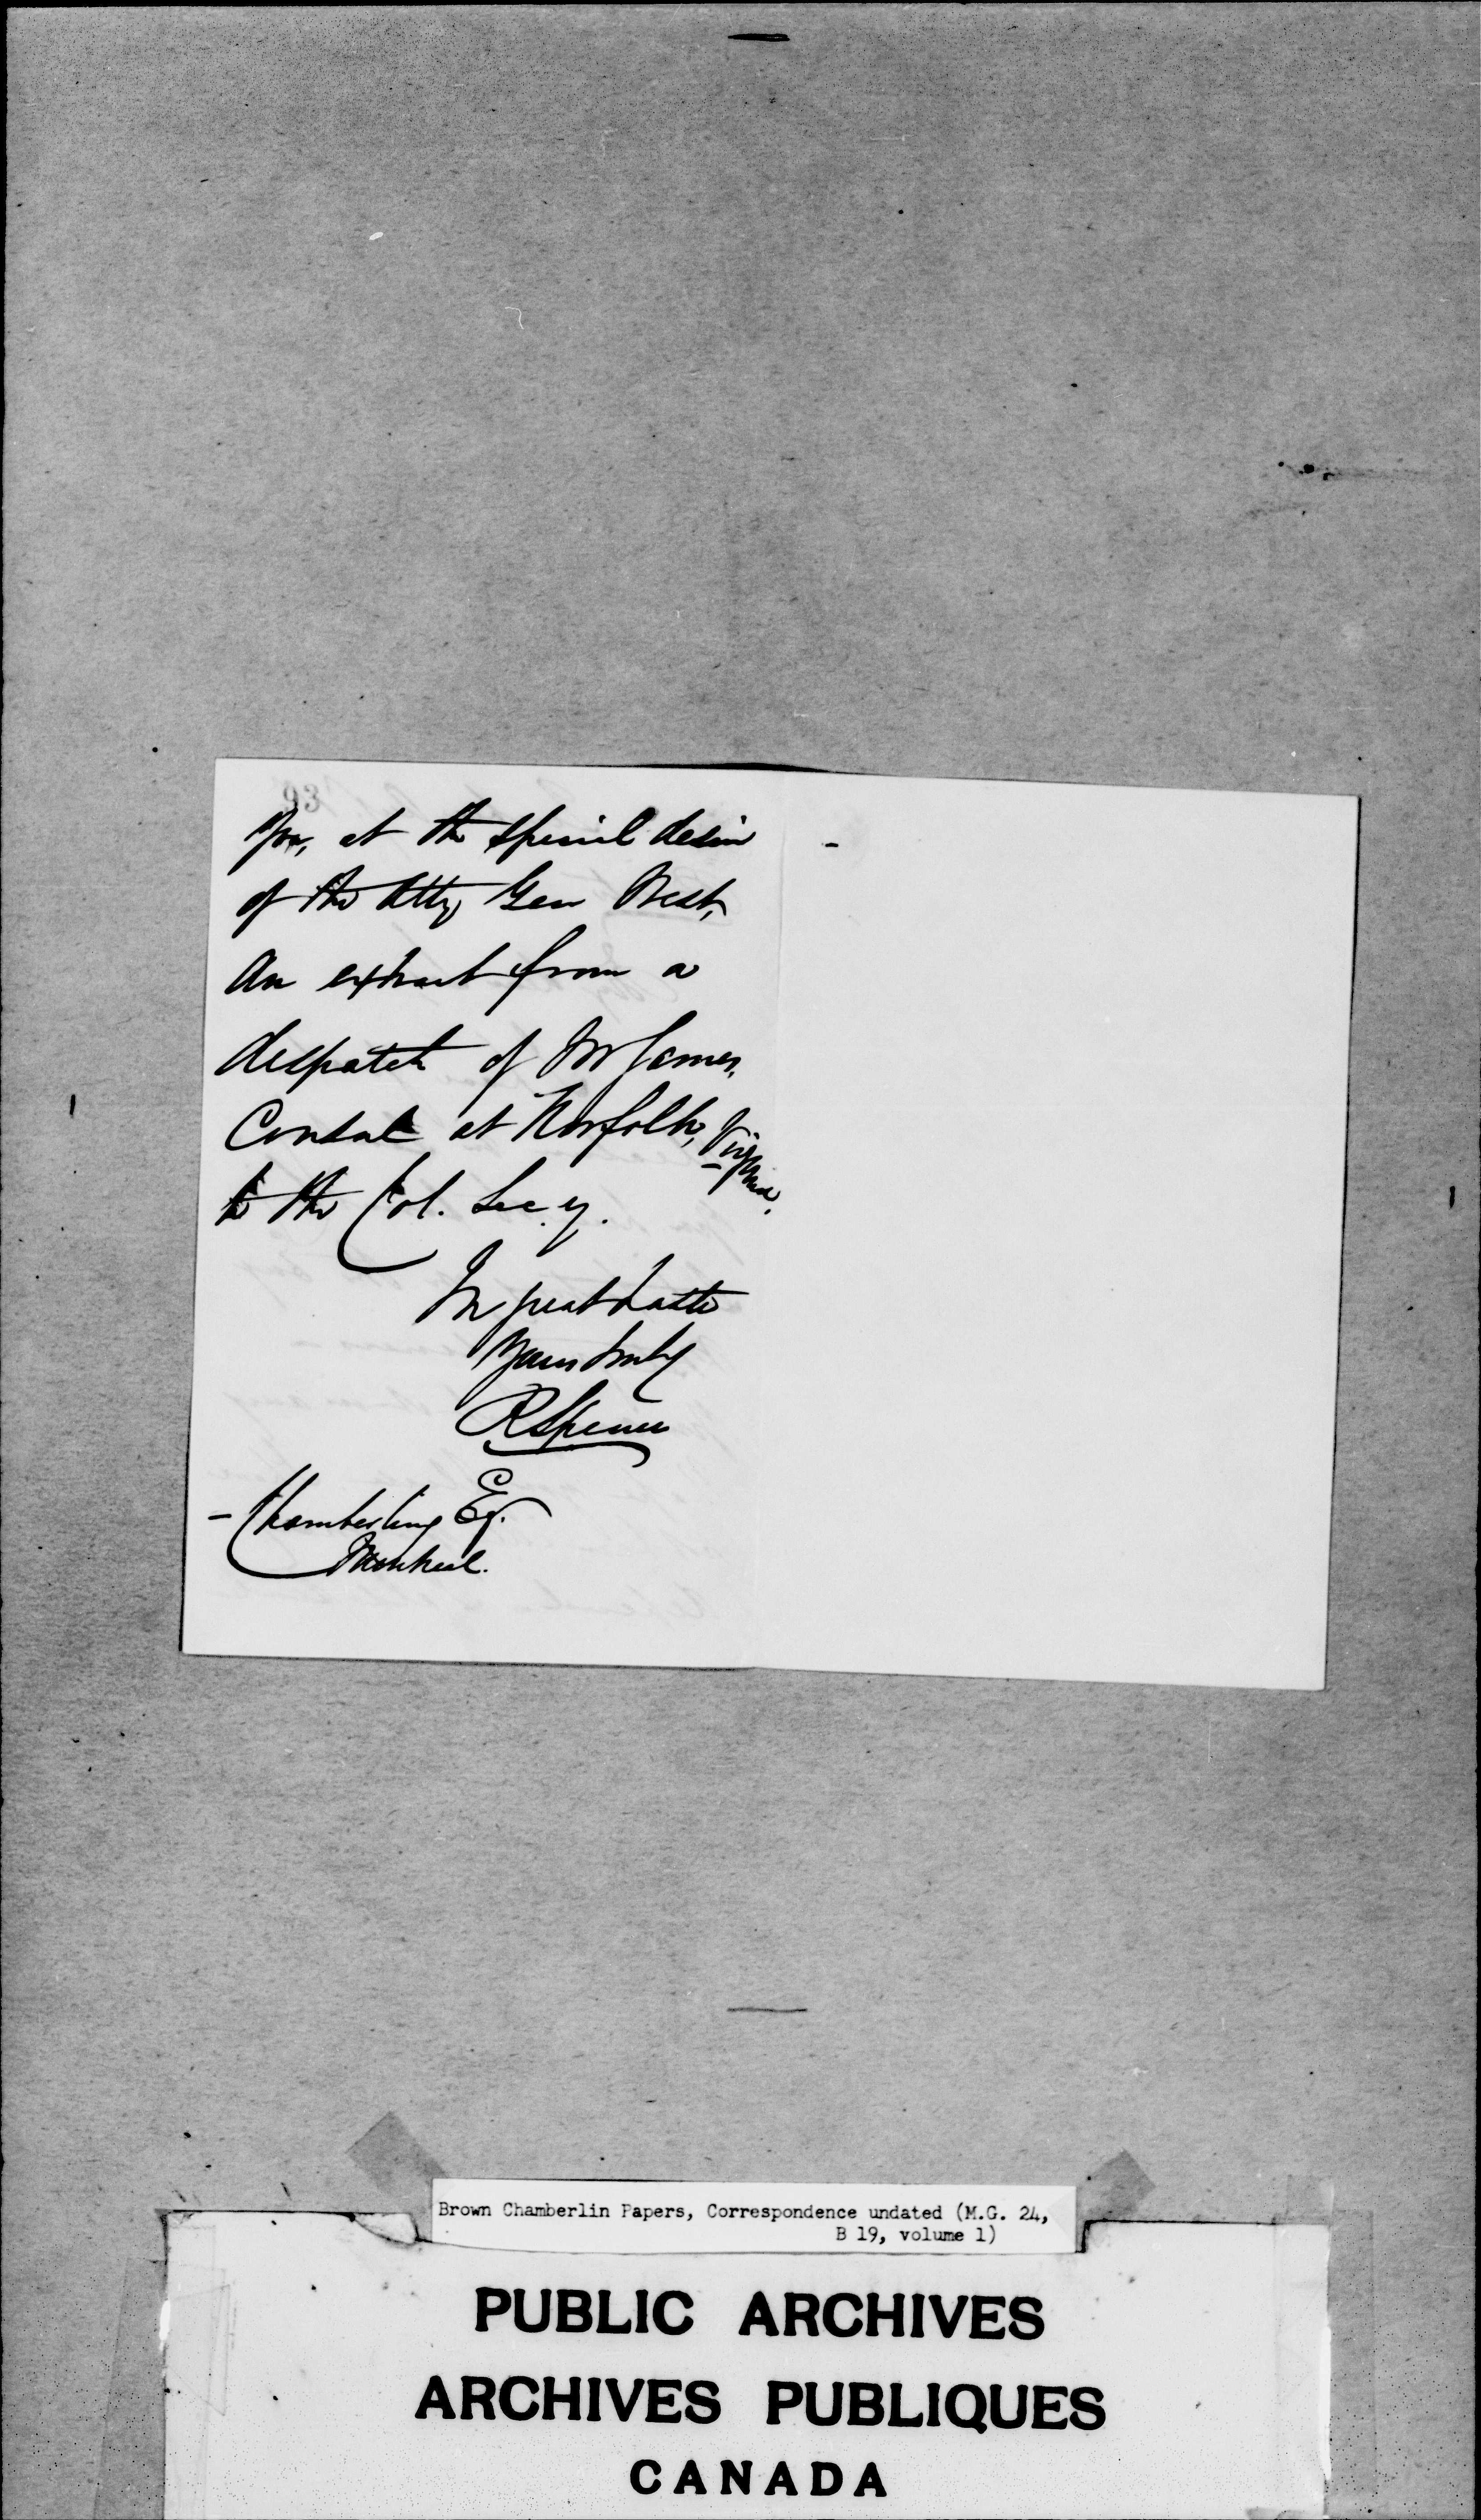 93
you, at the special desire
of the Atty Gen West,
an extract from a
despatch of Mr James,
Consul at Norfolk, Virginia,
to the Col. Secy.
In great haste
Yours truly
R Spence
– Chamberling Esq.
Montreal.
Brown Chamberlin Papers, Correspondence undated (M.G. 24,
B 19, volume 1)
PUBLIC ARCHIVES
ARCHIVES PUBLIQUES
CANADA